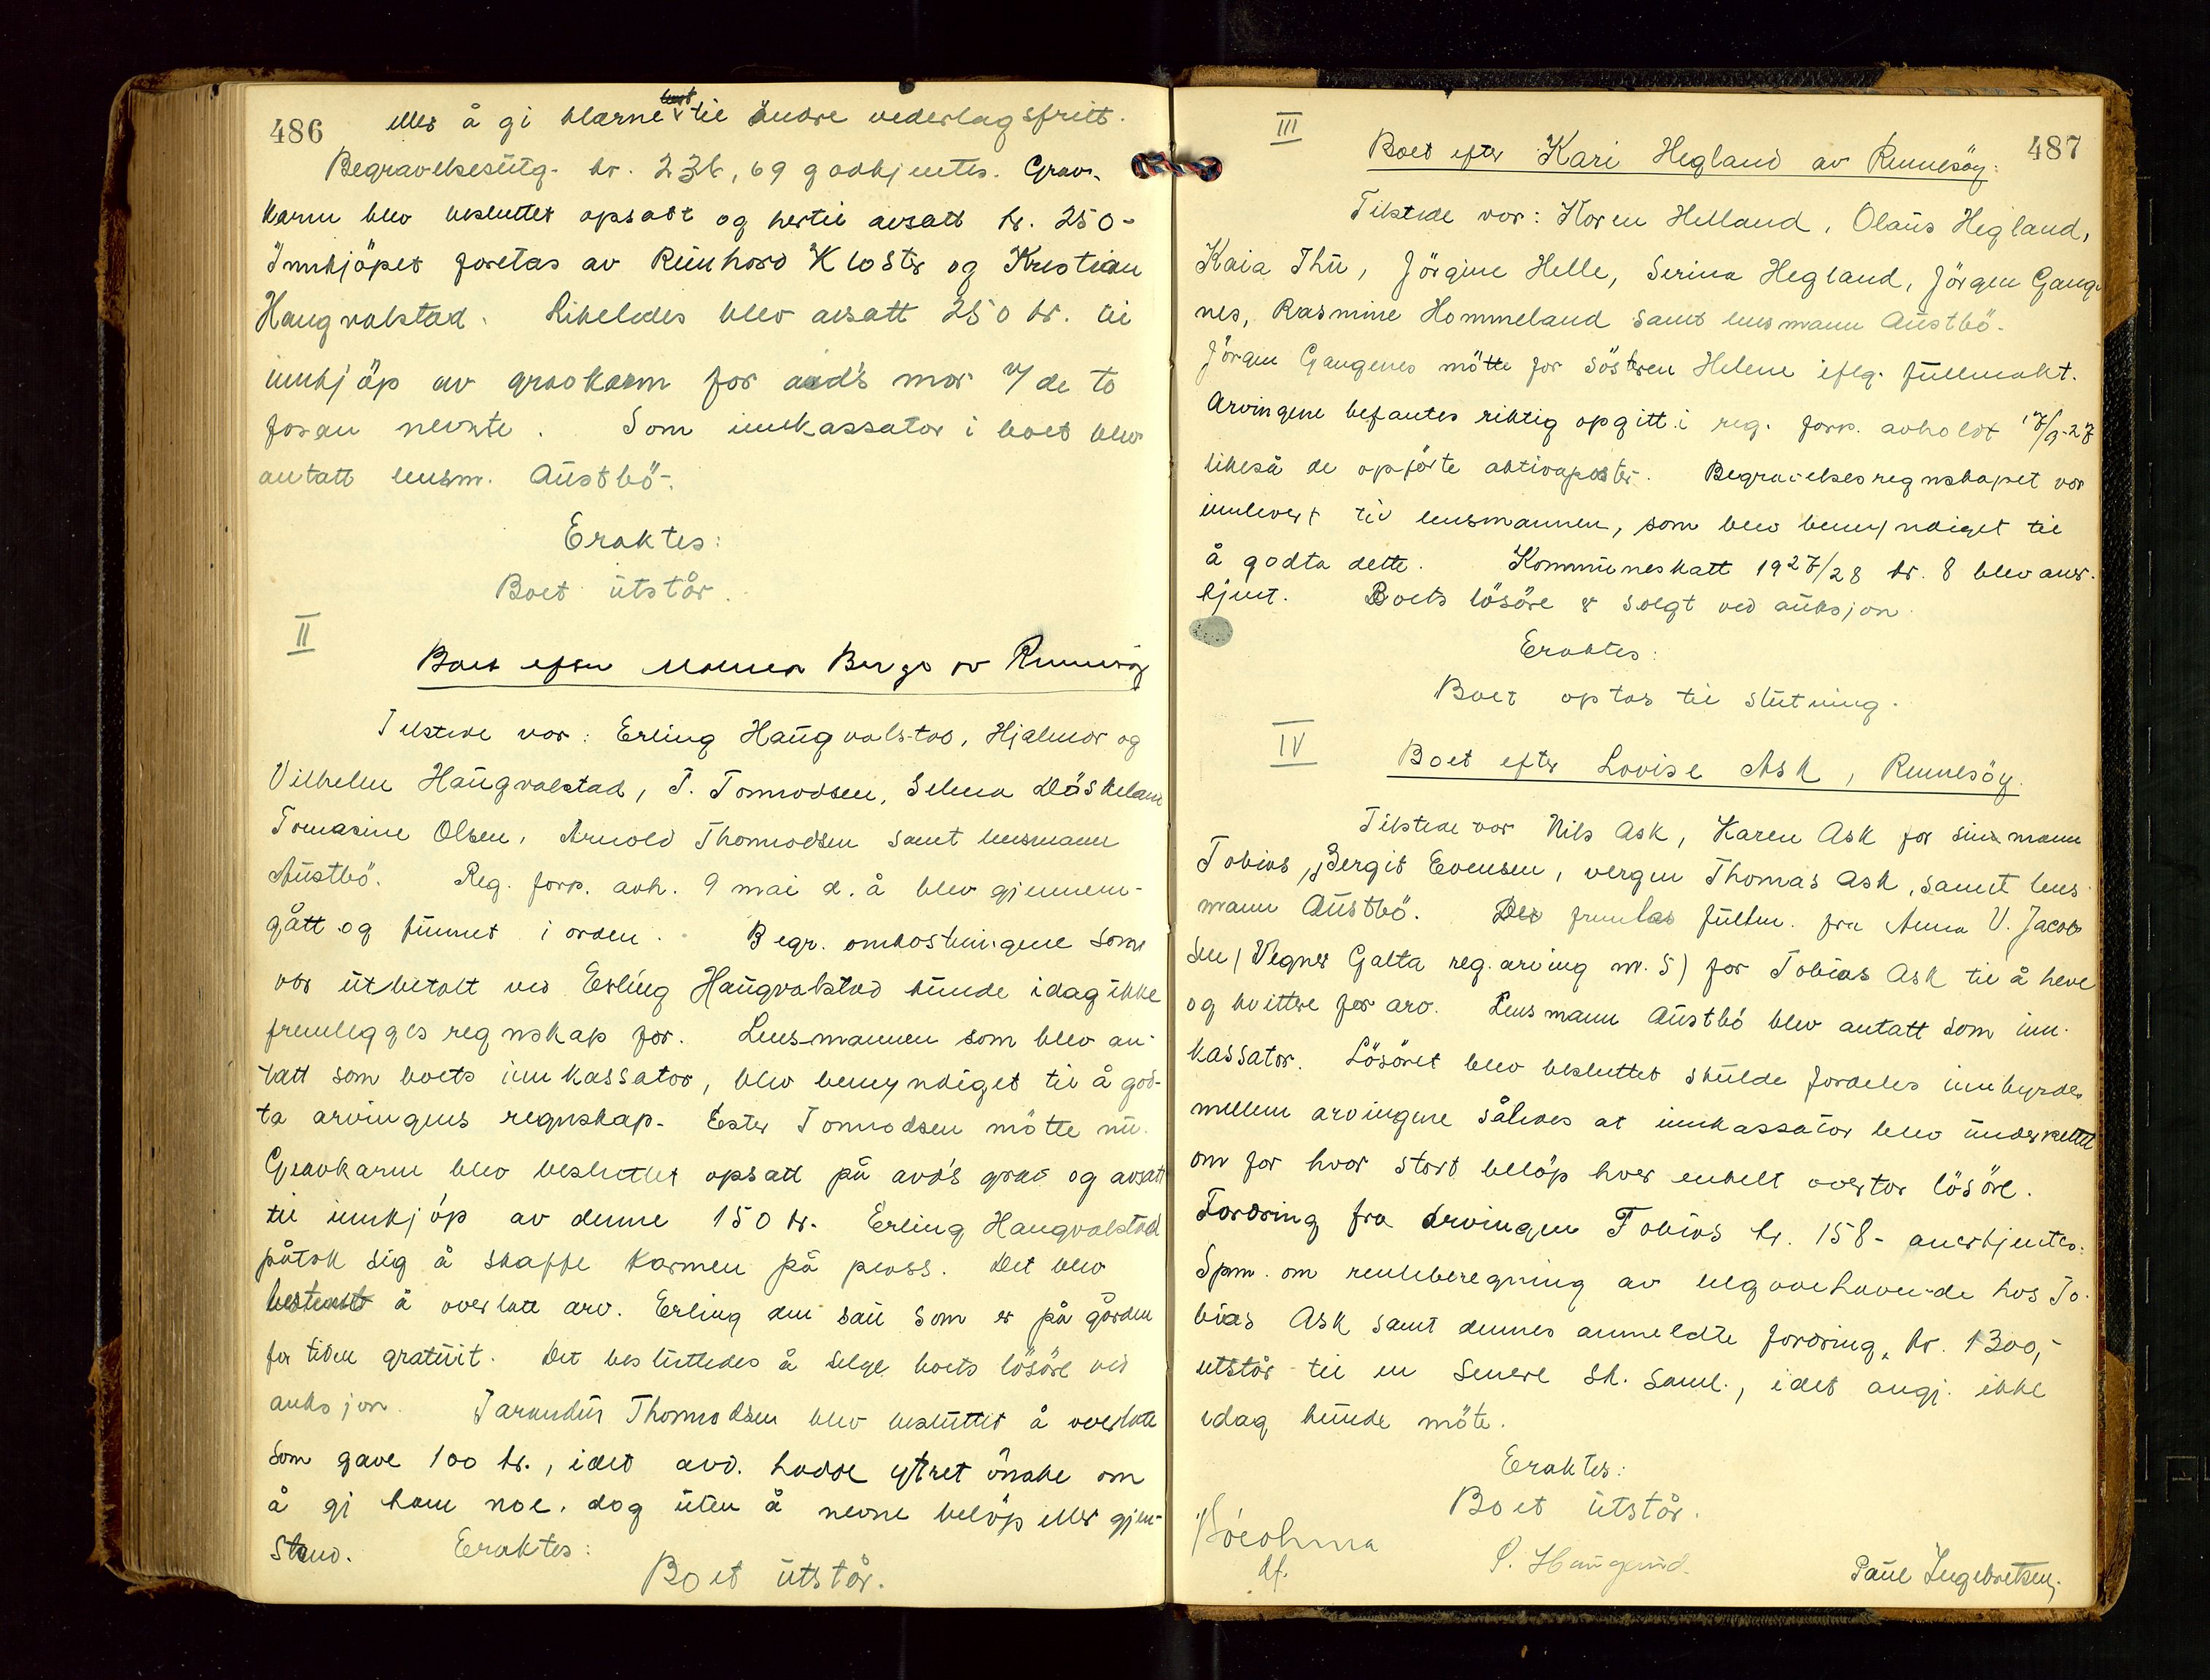 486
eller å gi klærne bort til andre vederlagsfritt.
Begravelsesutg. kr. 236,69 godkjentes. Grav-
karm blev besluttet opsatt og hertil avsatt kr. 250-
Innkjöpet foretas av Reinhard Kloster og Kristian
Haugvalstad. Likeledes blev avsatt 250 kr. til
innkjöp av gravkarm for avd's mor v/ de to
foran nevnte. Som innkassator i boet blev
antatt lensm. Austbö.
Eraktes:
Boet utstår.
II
Boet efter Malena Berge av Rennesöy
Tilstede var: Erling Haugvalstad, Hjalmar og
Vilhelm Haugvalstad, T. Tormodsen, Selma Döskeland
Tomasine Olsen, Arnold Thormodsen samt lensmann
Austbö. Reg. forr. avh. 9 mai d. å blev gjennem-
gått og funnet i orden. Begr. omkostningene som
var utbetalt ved Erling Haugvalstad kunde idag ikke
fremlegges regnskap for. Lensmannen som blev an-
tatt som boets innkassator, blev bemyndiget til å god-
ta arvingens regnskap. Ester Tormodsen mötte nu.
Gravkarm blev besluttet opsatt på avd's grav og avsatt
til innkjöp av denne 150 kr. Erling Haugvalstad
påtok sig å skaffe karmen på plass. Det blev
bestemt å overlate arv. Erling den sau som er på gården
for tiden gratuit. Det besluttedes å selge boets lösöre ved
auksjon. Thormodsen blev besluttet å overlate
som gave 100 kr., idet avd. hadde ytret önske om
å gi ham noe, dog uten å nevne belöp eller gjen-
stand. Eraktes:
Boet utstår.
487
III
Boet efter Kari Hegland av Rennesöy:
Tilstede var: Karen Helland, Olaus Hegland,
Kaia Thu, Jörgine Helle, Serina Hegland, Jörgen Gange-
nes, Rasmine Hommeland samt lensmann Austbö.
Jörgen Gangenes mötte for sösteren Helene iflg. fullmakt.
Arvingene befantes riktig opgitt i reg. forr. avholdt 17/9-27
likeså de opförte aktivaposter. Begravelsesregnskapet var
innlevert til lensmannen, som blev bemyndiget til
å godta dette. Kommuneskatt 1927/28 kr. 8 blev aner-
kjent. Boets lösöre er solgt ved auksjon.
Eraktes:
Boet optas til slutning.
IV
Boet efter Lovise Ask, Rennesöy.
Tilstede var Nils Ask, Karen Ask for sin mann
Tobias, Bergit Evensen, vergen Thomas Ask, samt lens-
mann Austbö. Der fremlas fullm. fra Anna V. Jacob-
sen (Vegner Galta reg. arving nr. 5) for Tobias Ask til å heve
og kvittere for arv. Lensmann Austbö blev antatt som inn-
kassator. Lösöret blev besluttet skulde fordeles innbyrdes
mellem arvingene således at innkassator blev underrettet
om for hvor stort belöp hver enkelt overtar lösöre.
Fordring fra arvingen Tobias kr. 158- anerkjentes.
Spm. om renteberegning av tilgodehavende hos To-
bias Ask samt dennes anmeldte fordring, kr. 1300,-
utstår til en senere sk. saml., idet angj. ikke
idag kunde möte.
Eraktes:
Boet utstår.
kf.
P. Haugland.
Paul Ingebretsen.